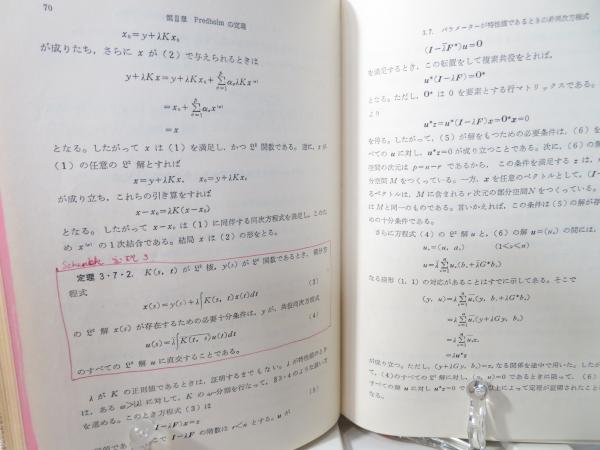 70
第Ⅱ章 Fredholm の定理
x₀=y+λKx₀
が成りたち,さらに x が(2)で与えられるときは
y+λKx=y+λKx₀+Σα_νλKx⁽ᵛ⁾
=x₀+Σα_νx⁽ᵛ⁾
=x
となる。したがって x は(1)を満足し,かつ 𝔏² 関数である。逆に,x が
(1)の任意の 𝔏² 解とすれば
x=y+λKx, x₀=y+λKx₀
が成り立ち,これらの引き算をすれば
x−x₀=λK(x−x₀)
となる。したがって x−x₀ は(1)に同伴する同次方程式を満足し,このた
め x⁽ᵛ⁾ の1次結合である。結局 x は(2)の形をとる。
定理 3・7・2. K(s, t) が 𝔏² 核,y(s) が 𝔏² 関数であるとき,積分方
程式
x(s)=y(s)+λ∫K(s, t)x(t)dt (3)
の 𝔏² 解 x(s) が存在するための必要十分条件は,y が,共役同次方程式
u(s)=λ̄∫K̅(̅t̅,̅ ̅s̅)̅u(t)dt (4)
のすべての 𝔏² 解 u に直交することである。
λ が K の正則値であるときは,証明するまでもない。λ が特性値のとき
は,ある ω>|λ| に対して,K の ω-分割を行なって,§3・4のような扱い方
を進める。このとき方程式(3)は
(I−λF)x=z (5)
I−λF の階数は r<n とする。u が
3.7. パラメーターが特性値であるときの非同次方程式
(I−λ̄F*)u=0
を満足するとき,この転置をして複素共役をとれば,
u*(I−λF)=0*
となる。ただし,0* は 0 を要素とする行マトリックスである。
より
u*z=u*(I−λF)x=0*x=0
を得る。したがって,(5)が解をもつための必要条件は,(6)を
べての u に対し,u*z=0 が成り立つことである。次に,(6)の解
空間の次元は p=n−r であるから,この条件を満足する z は,
分空間 M をつくっている。一方,x を任意のベクトルとして,(I−
るベクトルは,M に含まれる r 次元の部分空間 N をつくっている。
は M と同一のものである。言いかえれば,この条件は(5)の解が存
めの十分条件である。
さらに方程式(4)の 𝔏² 解 u と,(6)の解 u=(u_ν) の間には,
u_ν=(u, a_ν) (1≤ν≤n)
u=λ̄Σu_ν(b_ν+λ̄G*b_ν)
なる線形(1, 1)の対応があることはすでに示してある。そこで
(y, u)=λΣu̅_ν(y, b_ν+λ̄G*b_ν)
=λΣu̅_ν(y+λGy, b_ν)
=λΣu̅_νz_ν
=λu*z
が成り立つ。ただし,(y+λGy, b_ν)=z_ν なる関係を途中で用いた。したが
て,(4)のすべての 𝔏² 解に対し,(y, u)=0 であるときに限って,(6)
すべての解 u に対し u*z=0 で 以上によって定理が証明されたこと
なる。